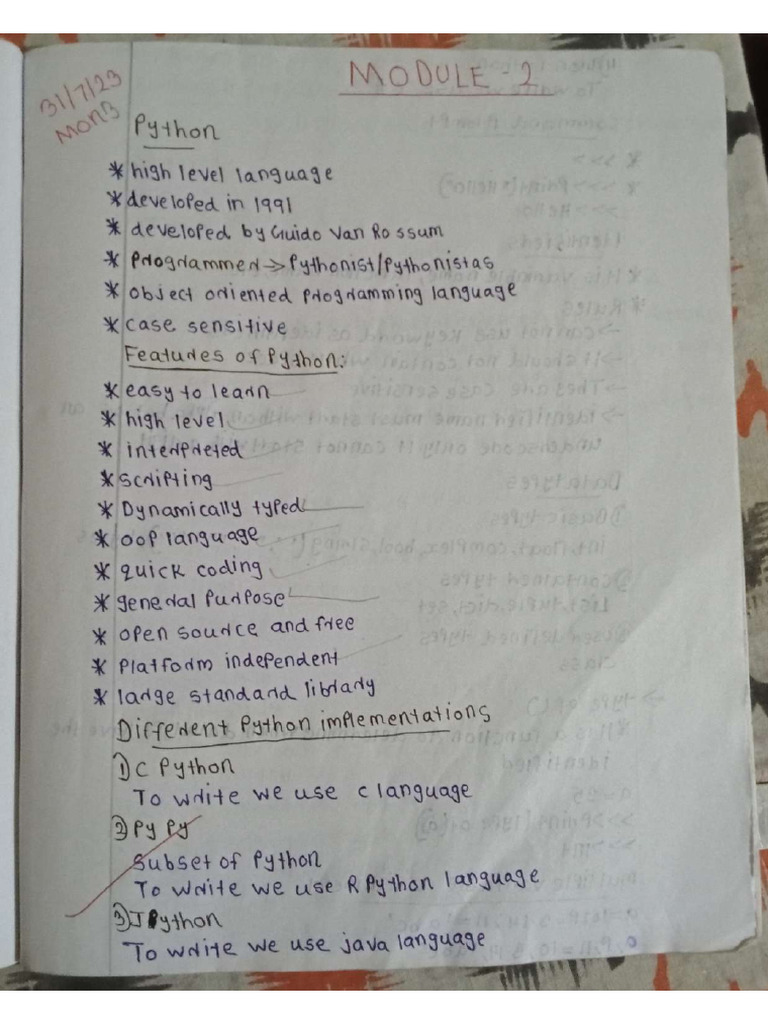 MODULE - 2
31/7/23
Mon3
Python
* high level language
* developed in 1991
* developed by Guido Van Rossum
* Programmer -> Pythonist/Pythonistas
* object oriented programming language
* case sensitive
Features of Python:
* easy to learn
* high level
* interpreted
* scripting
* Dynamically typed
* oop language
* quick coding
* general Purpose
* open source and free
* Platform independent
* large standard library
Different Python implementations
1) C Python
To write we use c language
2) Py Py
Subset of Python
To write we use R Python language
3) JPython
To write we use java language